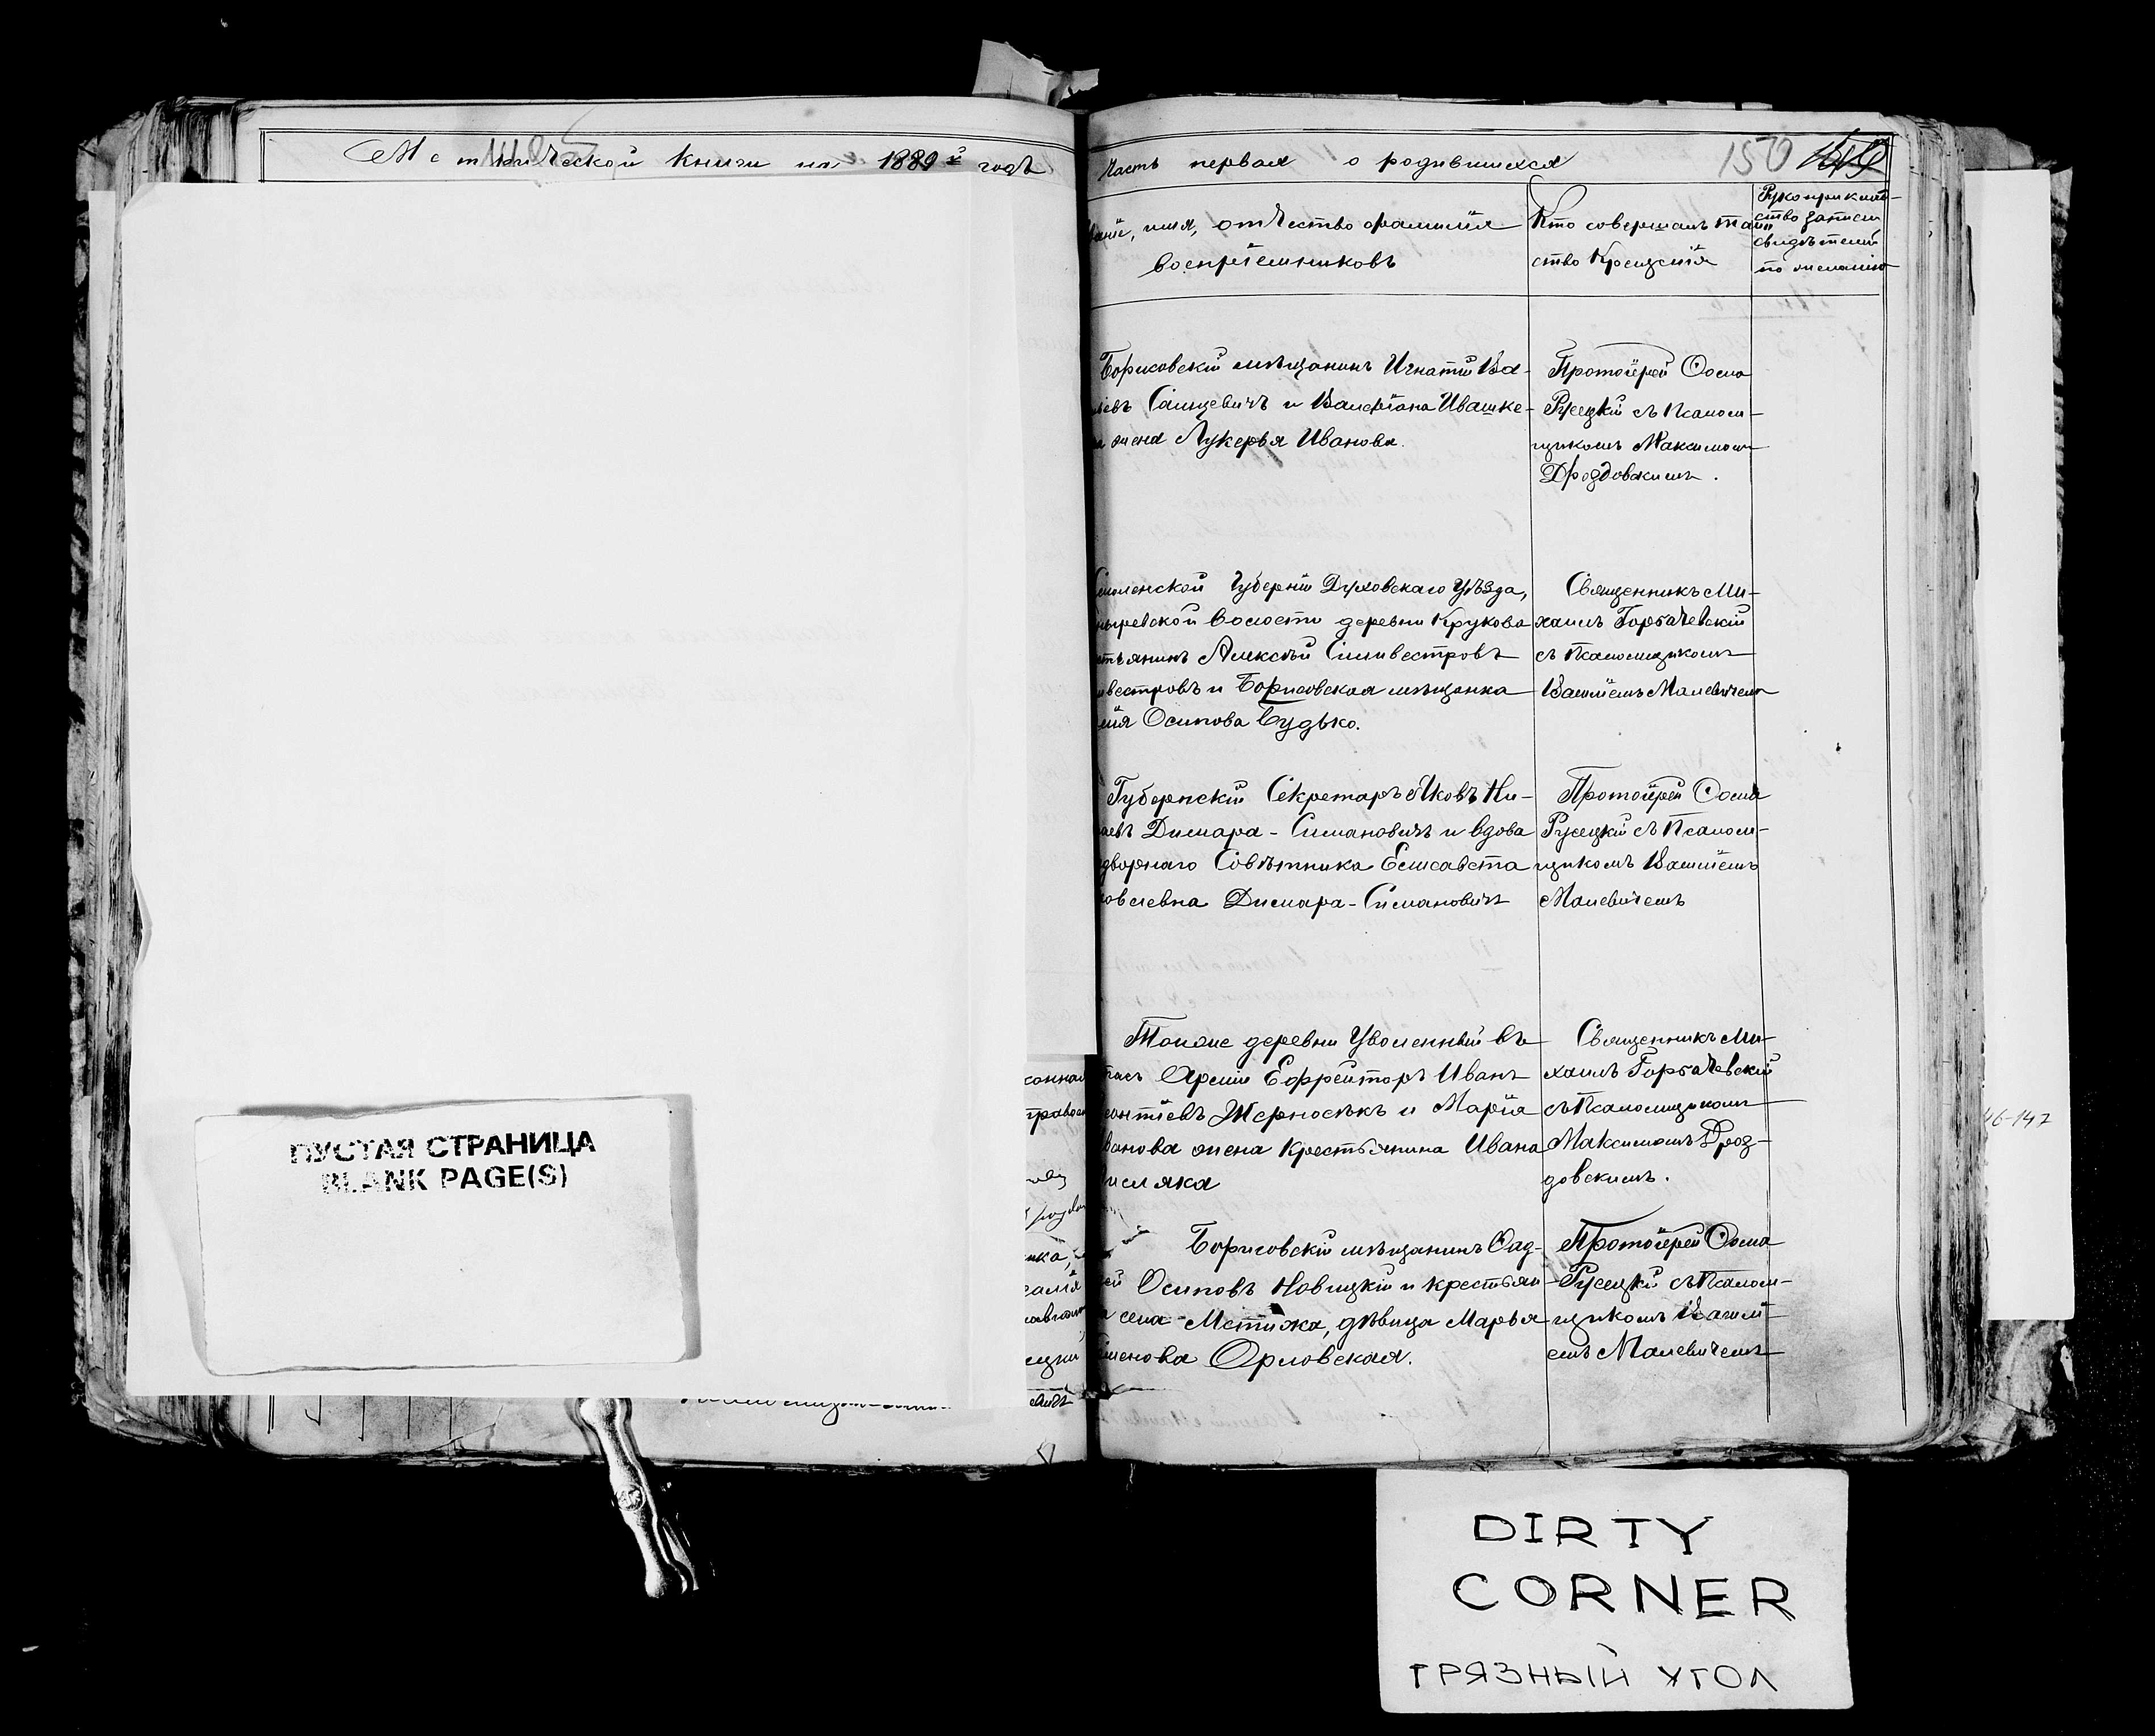 Метрической книги на 1889й годъ
ПУСТАЯ СТРАНИЦА
BLANK PAGE(S)
Часть первая о родившихся 150
имя, отчество фамилія
воспріемниковъ
Кто совершалъ таин
ство Крещенія
Рукоприклад-
ство записи
свидѣтелей
по желанію
Борисовскій мѣщанинъ Игнатій Ва-
Сальцевичъ и Валеріана Ивашке-
жена Лукерья Иванова.
Протоіерей Ѳома
Русецкій съ Псалом-
щикомъ Максимомъ
Дроздовскимъ.
Смоленской Губерніи Духовскаго Уѣзда,
волости деревни Крукова
Алексѣй Сильвестровъ
и Борисовская мѣщанка
Осипова Будько.
Священникъ Ми-
хаилъ Горбачевскій
съ Псаломщикомъ
Василіемъ Малевичемъ
Губернскій Секретарь Яковъ Ни-
Димара-Симановичъ и вдова
дворнаго Совѣтника Елисавета
Димара-Симановичъ
Протоіерей Ѳома
Русецкій съ Псалом-
щикомъ Василіемъ
Малевичемъ
Тойже деревни Уволенный въ
Арміи Ефрейторъ Иванъ
Жерносѣкъ и Марія
Иванова жена крестьянина Ивана
Священникъ Ми-
хаилъ Горбачевскій
съ Псаломщикомъ
Максимомъ Дроз-
довскимъ.
Борисовскій мѣщанинъ Ѳад-
ей Осиповъ Новицкій и крестьян
села Мстижа, дѣвица Марья
Семенова Орловская.
Протоіерей Ѳома
Русецкій съ Псалом-
щикомъ Васили-
емъ Малевичемъ
46-147
DIRTY
CORNER
ГРЯЗНЫЙ УГОЛ